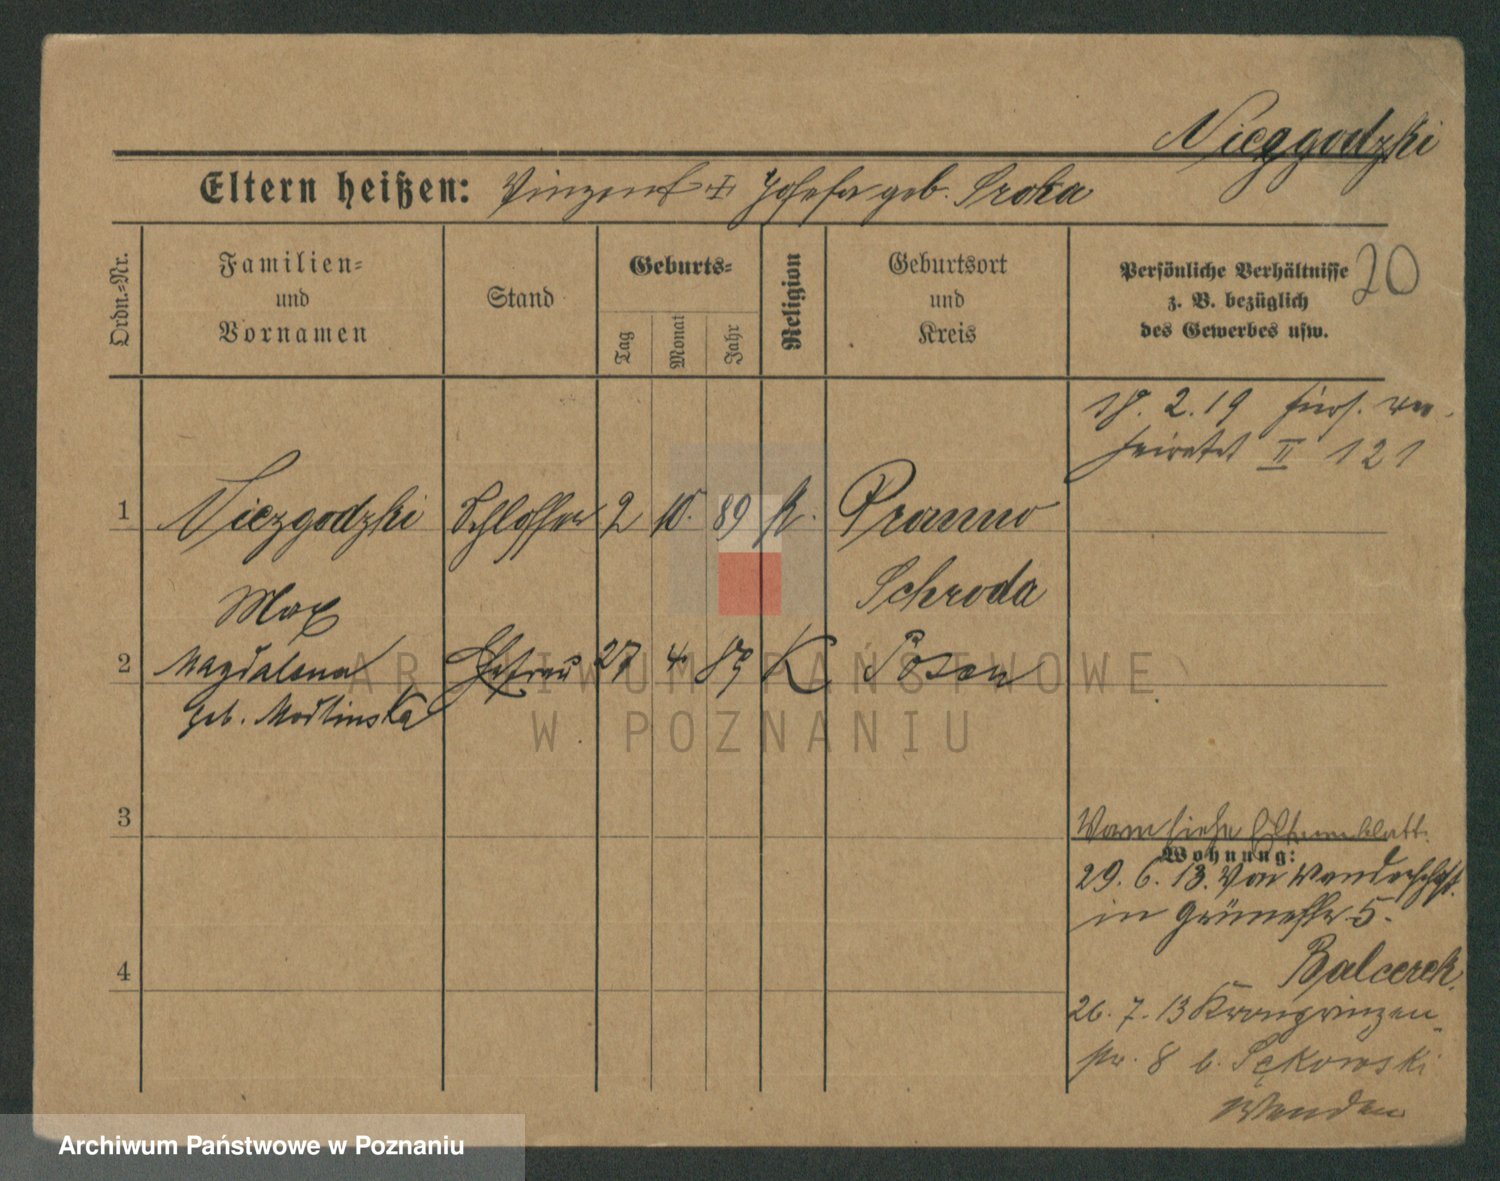 Niezgodzki
Eltern heißen: Vinzent + Josefa geb. Sroka
Ordn.-Nr.
Familien-
und
Vornamen
Stand
Geburts-
Tag
Monat
Jahr
Religion
Geburtsort
und
Kreis
Persönliche Verhältnisse
z. B. bezüglich
des Gewerbes usw.
20
2.19 ver-
heiratet II 121
1 Niezgodzki Schlosser 2 10. 89 k.
Max Schroda
2 Magdalena Ehefrau 27 4 89 K Posen
geb.
3
Vorn siehe Elternblatt.
Wohnung:
29. 6. 13. von Wanderschaft.
in Grünestr. 5.
4
Balcerek.
26. 7. 13 Kronprinzen-
str. 8 b. Sękowski
ARCHIWUM PAŃSTWOWE
W POZNANIU
Archiwum Państwowe w Poznaniu